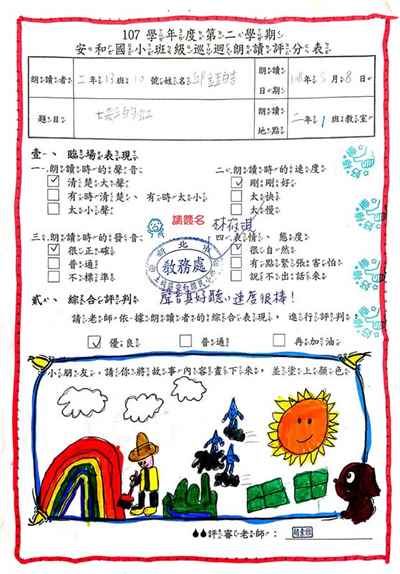 107 學年度第二學期
安和國小班級巡迴朗讀評分表
朗讀者 二年13班1 號姓名邱
朗讀日期 108年5月8日
題目
朗讀地點 二年1班教室
壹、臨場表現
一、朗讀時的聲音
清楚大聲
有時清楚、有時太小
太小聲
二、朗讀時的速度
剛剛好
太快
太慢
請簽名
三、朗讀時的發音
很正確
普通
不標準
四、表情、態度
很自然
有點緊張害怕
說不出話來
教務處
貳、綜合評判
聲音真好聽、速度很棒!
請老師依據朗讀者的綜合表現,進行評判,
優良
普通
再加油
小朋友,請你將故事內容畫下來,並塗上顏色
評審老師: